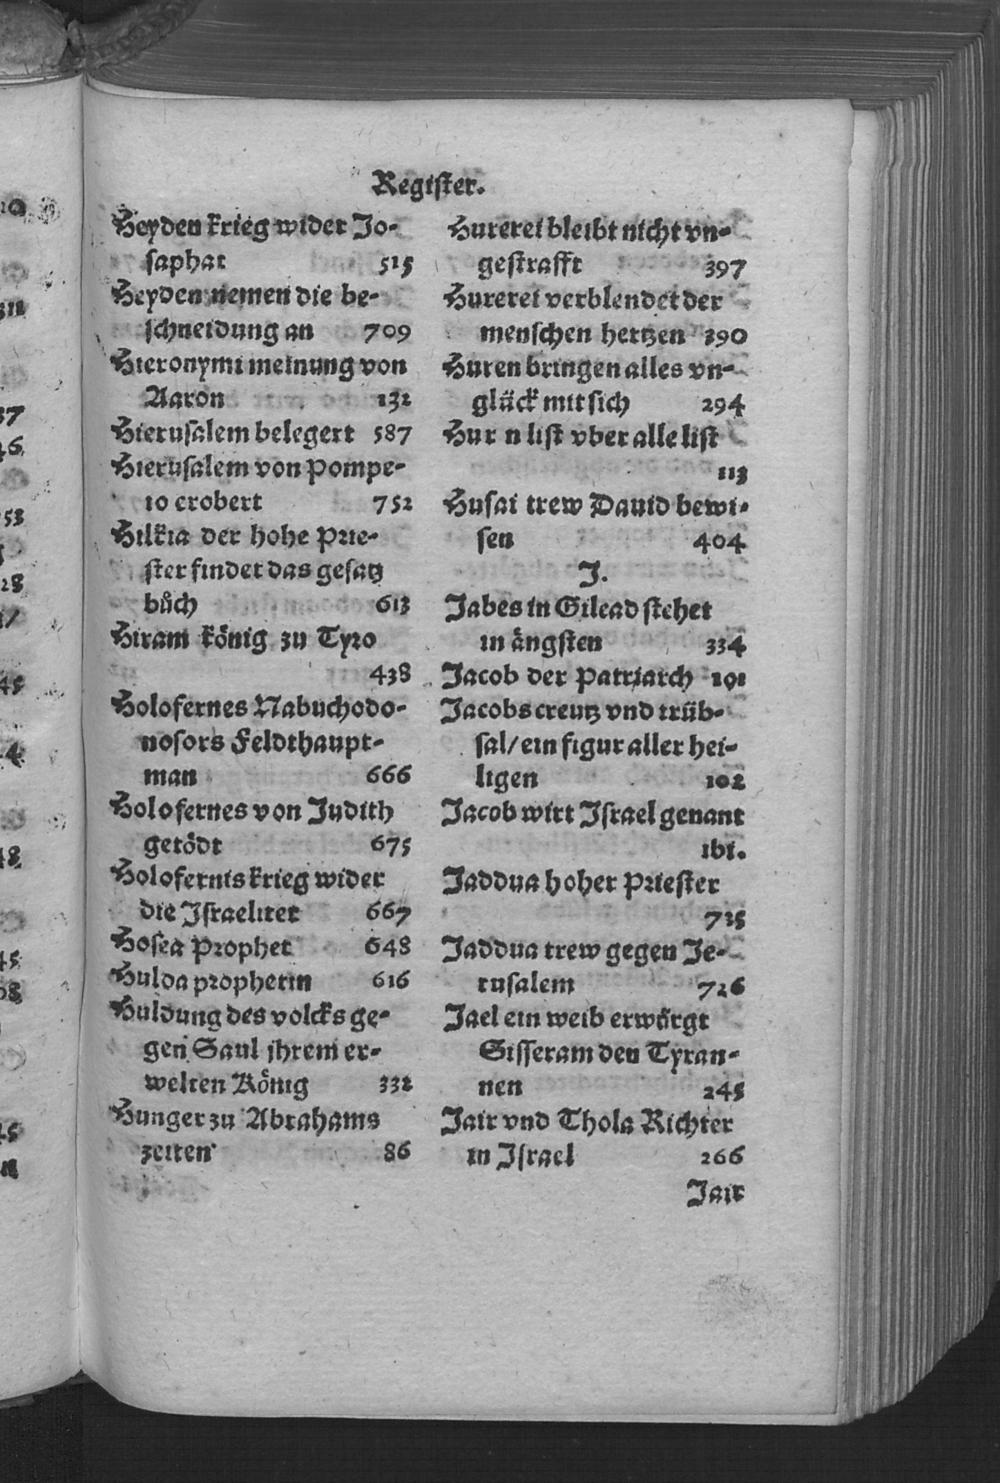 Register.
Heyden krieg wider Jo-
saphat 515
Heyden nemen die be-
schneidung an 709
Hieronymi meinung von
Aaron 132
Hierusalem belegert 587
Hierusalem von Pompe-
io erobert 752
Hilkia der hohe Prie-
ster findet das gesatz
bůch 613
Hiram könig zu Tyro
438
Holofernes Nabuchodo-
nosors Feldthaupt-
man 666
Holofernes von Judith
getödt 675
Holofernis krieg wider
die Israeliter 667
Hosea Prophet 648
Hulda prophetin 616
Huldung des volcks ge-
gen Saul ihrem er-
welten König 332
Hunger zu Abrahams
zeiten 86
Hurerei bleibt nicht vn-
gestrafft 397
Hurerei verblendet der
menschen hertzen 290
Huren bringen alles vn-
glück mit sich 294
Hur n list vber alle list
113
Husai trew Dauid bewi-
sen 404
J.
Jabes in Gilead stehet
in ängsten 334
Jacob der Patriarch 101
Jacobs creutz vnd trüb-
sal/ ein figur aller hei-
ligen 102
Jacob wirt Israel genant
ibi.
Jaddua hoher Priester
725
Jaddua trew gegen Je-
rusalem 726
Jael ein weib erwürgt
Sisseram den Tyran-
nen 245
Jair vnd Thola Richter
in Israel 266
Jair
37
46
53
28
45
48
45